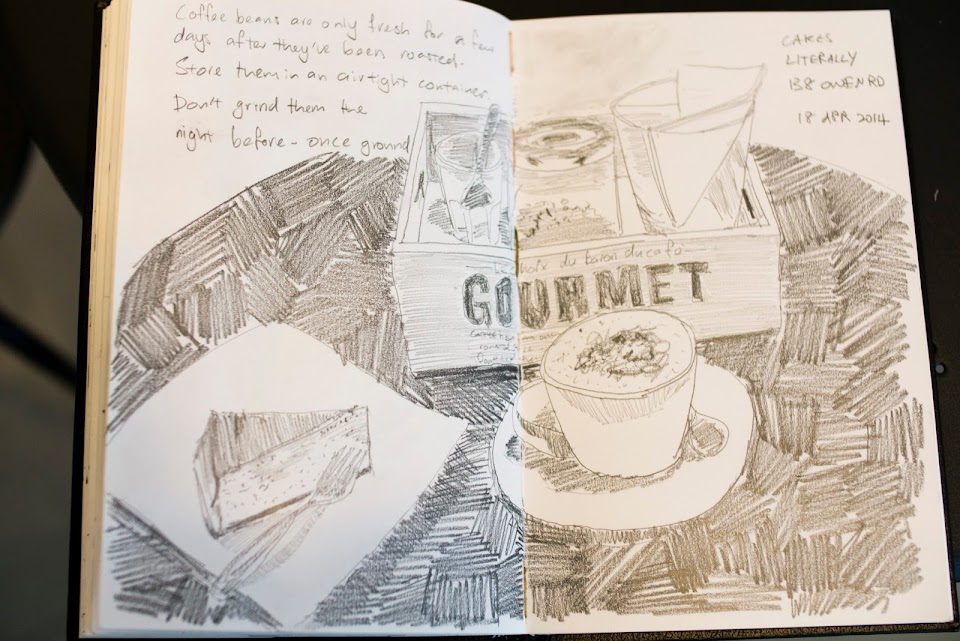 Coffee beans are only fresh for a few
days after they've been roasted.
Store them in an airtight container.
Don't grind them the
night before - once ground
CAKES
LITERALLY
138 OWEN RD
18 APR 2014
Le choix du baron du café
GOURMET